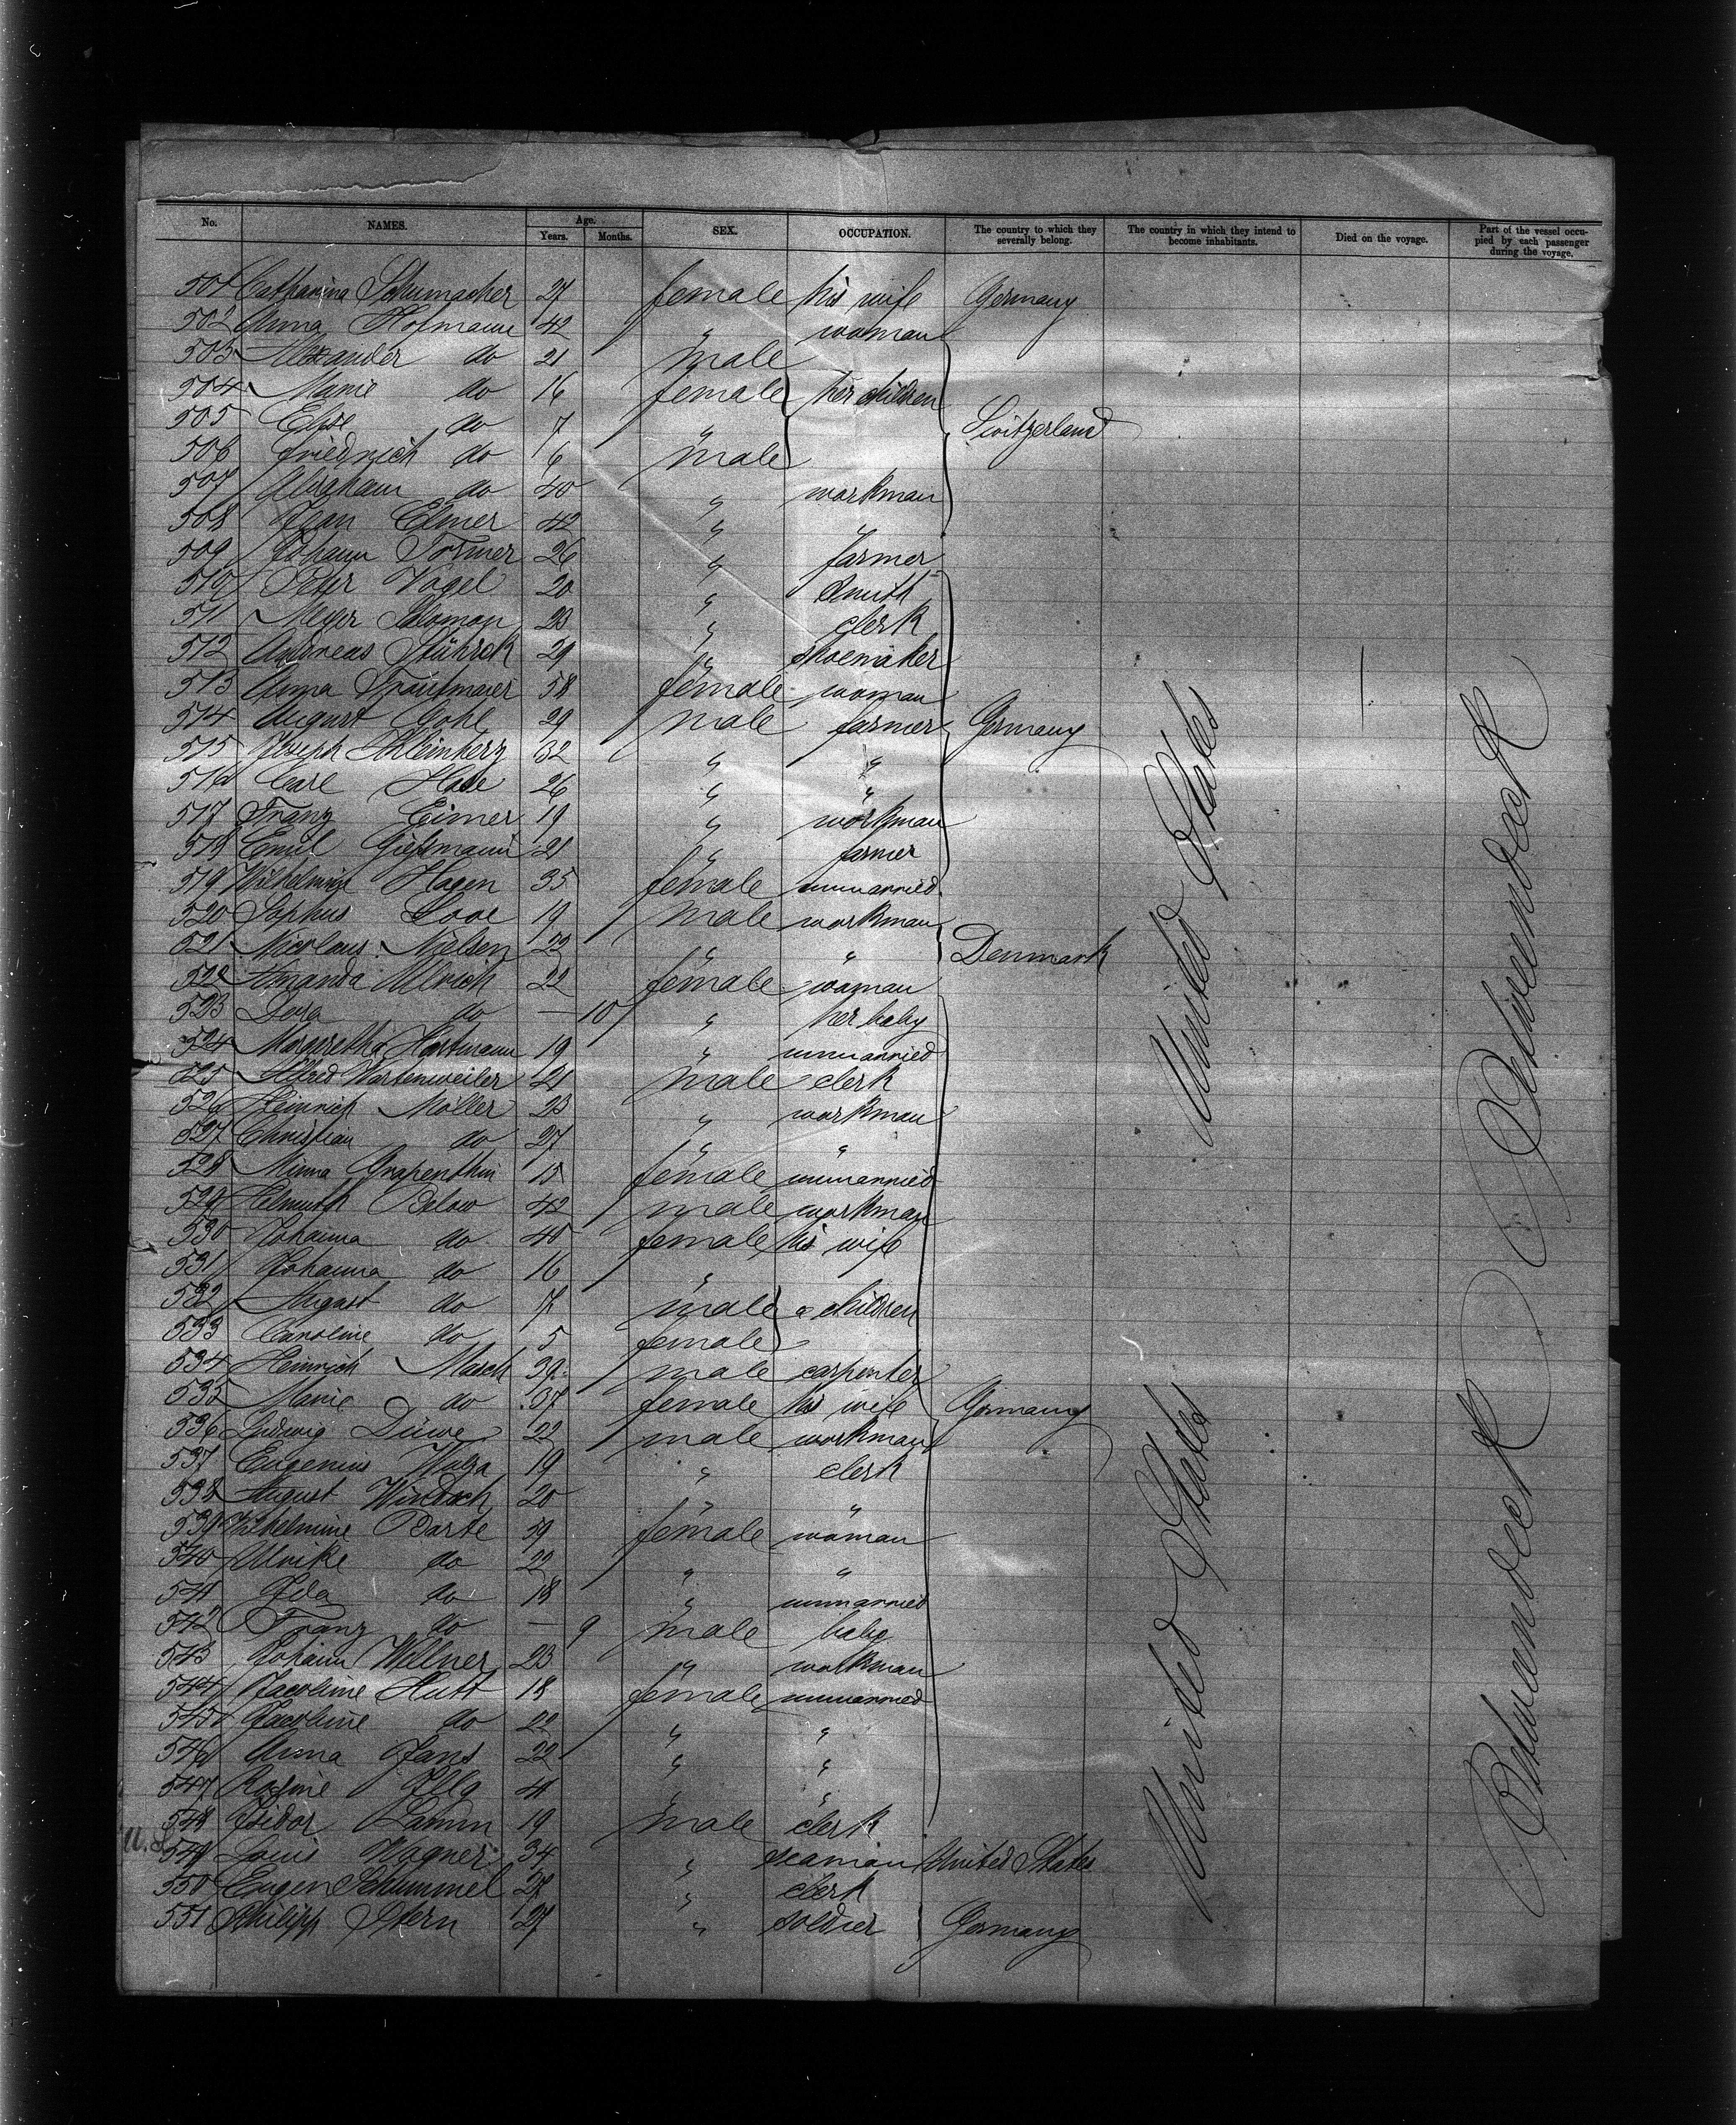 No. NAMES. Age. Years. Months. SEX. OCCUPATION. The country to which they severally belong. The country in which they intend to become inhabitants. Died on the voyage. Part of the vessel occupied by each passenger during the voyage.
501 Catharina Schumacher 27 female his wife Germany
502 Anna Hofmann 42 " woman
503 Alexander do 21 male
504 Marie do 16 female her children
505 Elise do 7 " Switzerland
506 Friedrich do 6 male
507 Abraham do 40 " workman
508 Jean Elmer 42 " "
509 Johann Tormer 26 " farmer
510 Peter Vogel 20 " Smith
511 Meyer Salomon 23 " clerk
512 Andreas 29 " shoemaker
513 Anna 58 female woman
514 August Gohl 29 male farmer Germany
515 Joseph Kleinherz 32 " "
516 Carl Hase 26 " "
517 Franz Eimer 19 " workman
518 Emil Gießmann 21 " farmer
519 Wilhelmine Hagen 35 female unmarried
520 Sophus 19 male workman
521 Nicolaus Nielsen 22 " " Denmark
522 Amanda Ullrich 22 female woman
523 Dora do — 10 " her baby
524 Margaretha Hartmann 19 " unmarried
525 Alfred Wartenweiler 21 male clerk
526 Heinrich Möller 23 " workman
527 Christian do 27 " "
528 Minna Grapenthin 15 female unmarried
529 Helmuth Below 42 male workman
530 Johanna do 40 female his wife
531 Johanna do 16 "
532 August do 7 male a children
533 Caroline do 5 female
534 Heinrich Masch 39 male carpenter
535 Marie do 37 female his wife Germany
536 Ludwig Düwe 22 male workman
537 Eugenius 19 " clerk
538 August 20 " "
539 Wilhelmine Barte 59 female woman
540 Ulrike do 22 " "
541 Ida do 18 " unmarried
542 Franz do — 9 male baby
543 Johann Willner 23 " workman
544 Jacobine Hutt 18 female unmarried
545 Jacobine do 22 " "
546 Anna Jans 22 " "
547 Rosine Illg 41 " "
548 Isidor Lamm 19 male clerk
549 Louis Wagner 34 " seaman United States
550 Eugen Schummel 27 " clerk
551 Philipp Stern 27 " soldier Germany
United States
United States
Betweendeck
Betweendeck